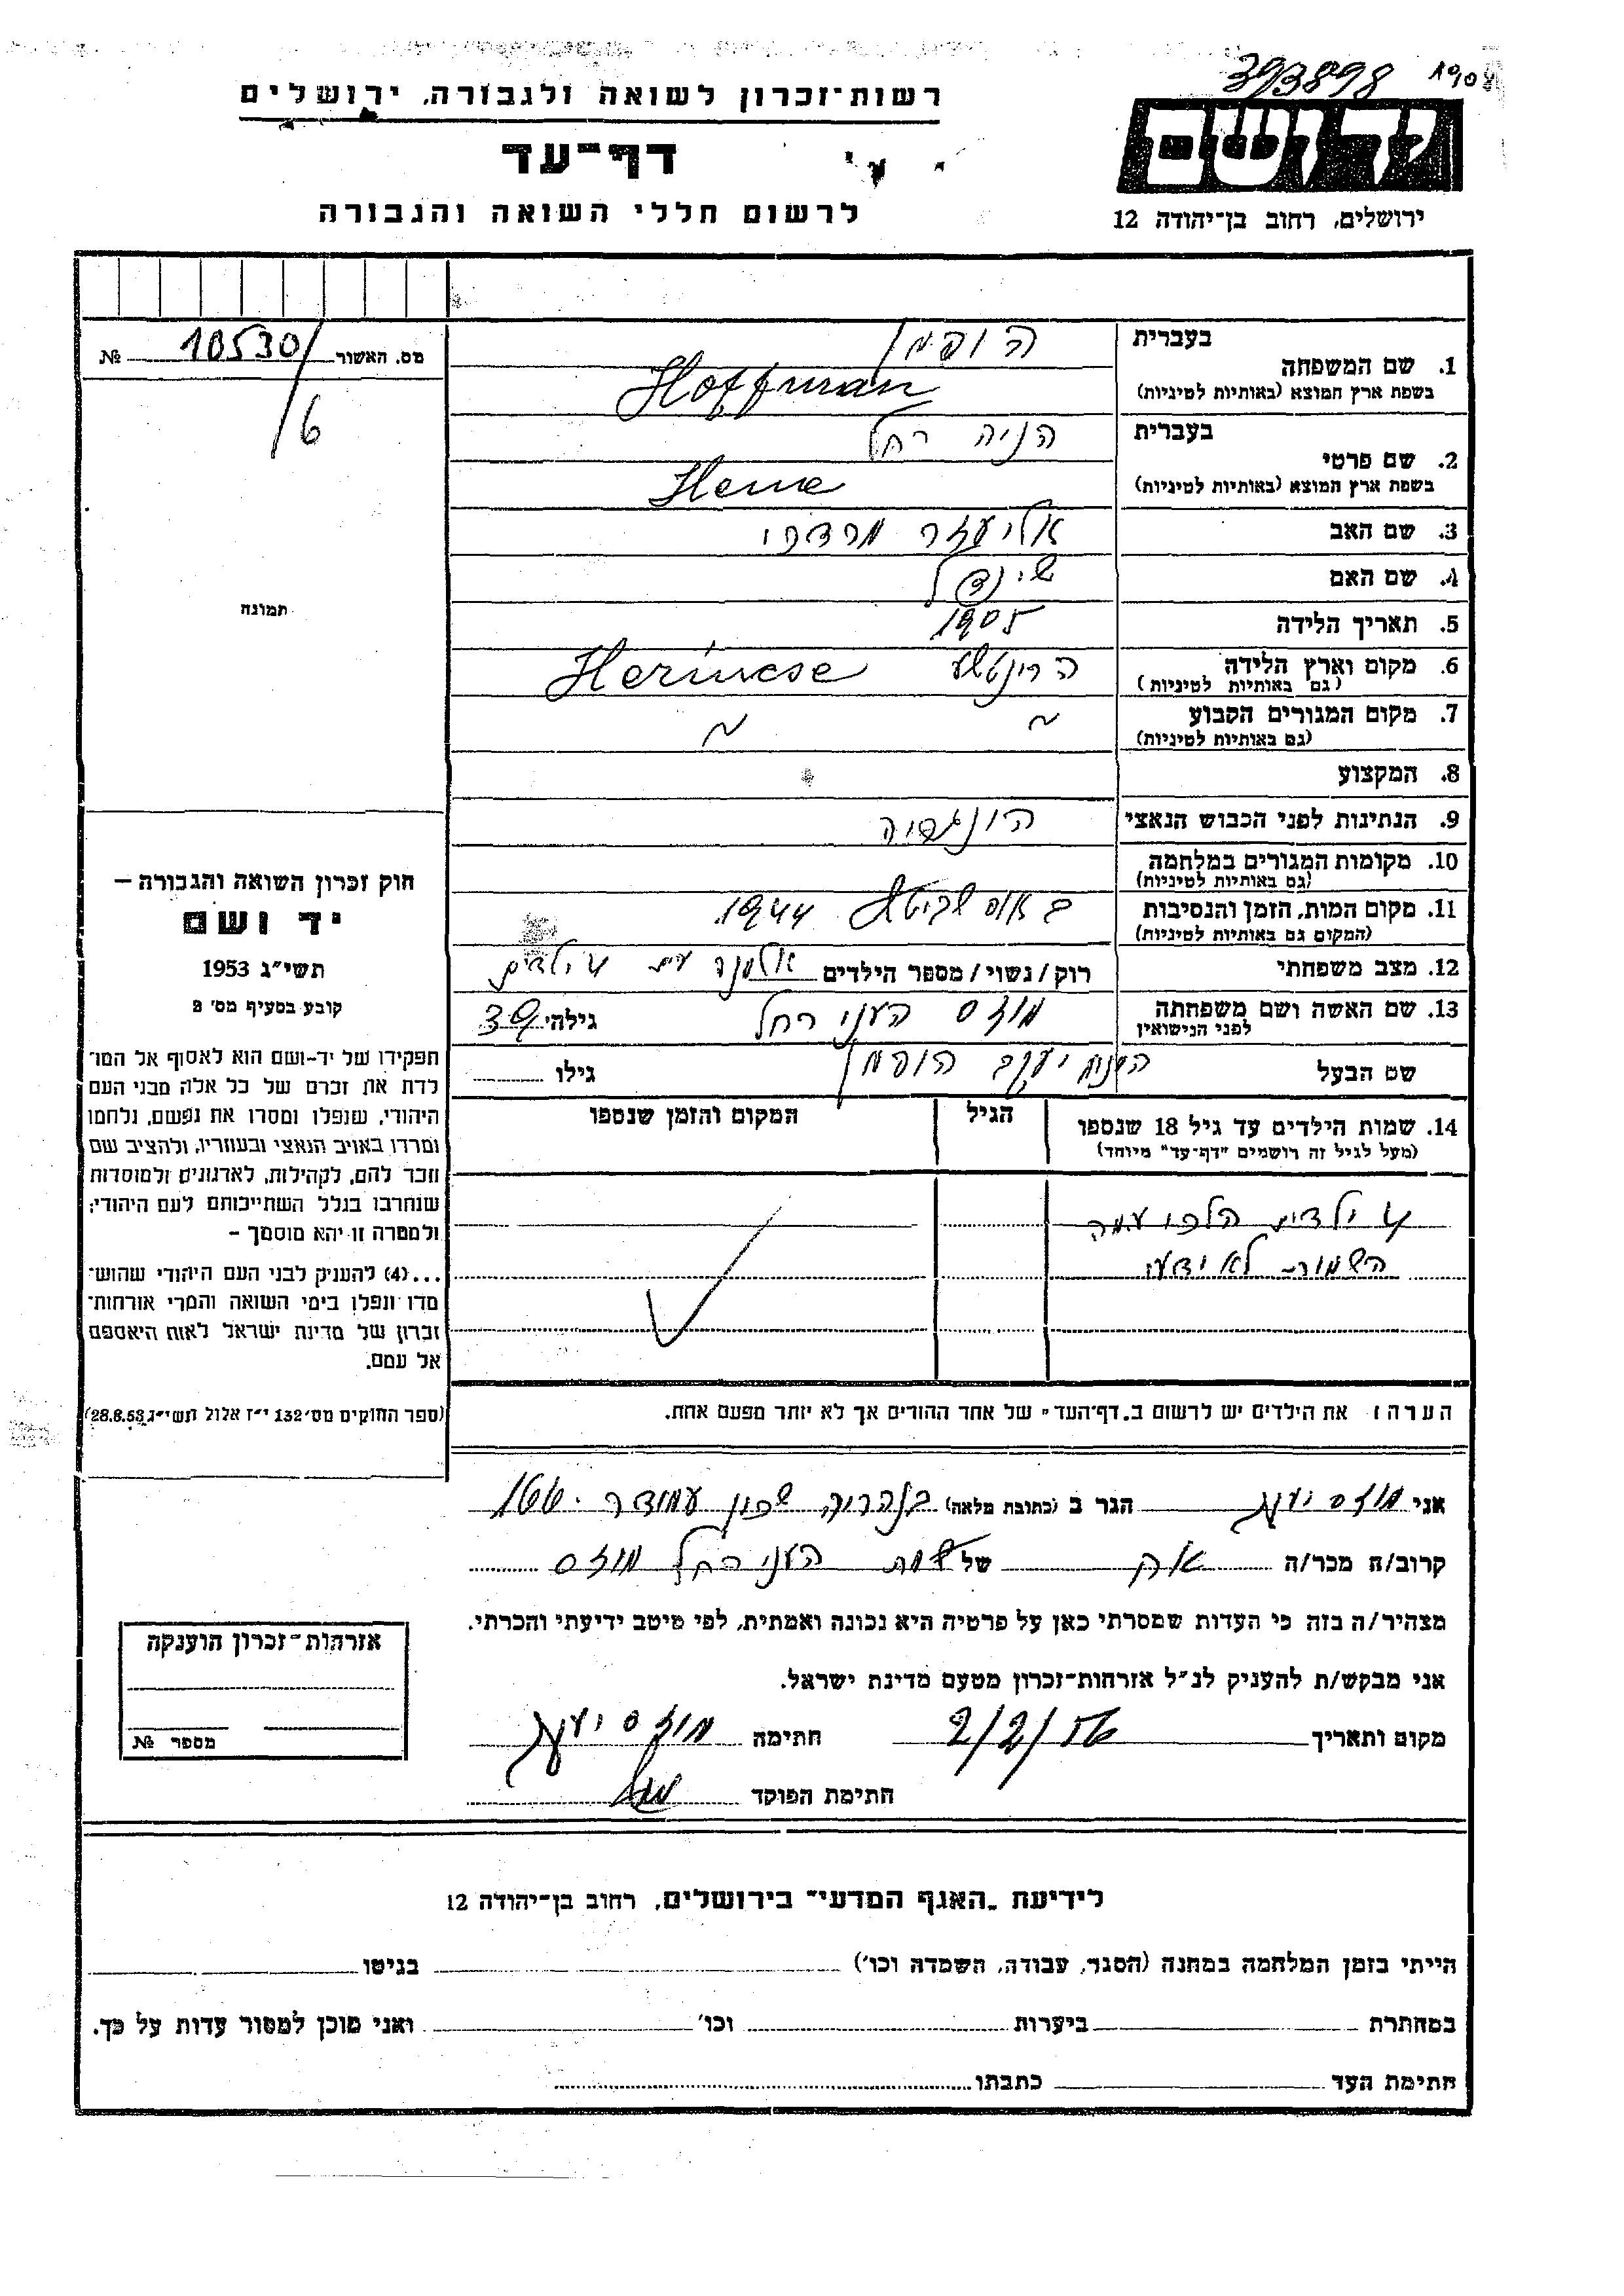 393898 1908
רשות־זכרון לשואה ולגבורה, ירושלים
דף־עד
לרשום חללי השואה והגבורה
ידושם
ירושלים, רחוב בן־יהודה 12
מס. האשור 10530/6 №
תמונה
חוק זכרון השואה והגבורה –
יד ושם
תשי״ג 1953
קובע בסעיף מס׳ 2
תפקידו של יד־ושם הוא לאסוף אל המו־
לדת את זכרם של כל אלה מבני העם
היהודי, שנפלו ומסרו את נפשם, נלחמו
ומרדו באויב הנאצי ובעוזריו, ולהציב שם
וזכר להם, לקהילות, לארגונים ולמוסדות
שנחרבו בגלל השתייכותם לעם היהודי;
ולמטרה זו יהא מוסמך –
...(4) להעניק לבני העם היהודי שהוש־
מדו ונפלו בימי השואה והמרי אזרחות־
זכרון של מדינת ישראל לאות היאספם
אל עמם.
(ספר החוקים מס׳ 132 י״ז אלול תשי״ג 28.8.53)
1. שם המשפחה
בעברית הופמן
בשפת ארץ המוצא (באותיות לטיניות) Hoffman
2. שם פרטי
בעברית הניה רחל
בשפת ארץ המוצא (באותיות לטיניות) Hene
3. שם האב אליעזר מרדכי
4. שם האם שינדל
5. תאריך הלידה 1905
6. מקום וארץ הלידה הרינטשע Herincse
(גם באותיות לטיניות)
7. מקום המגורים הקבוע ~ ~
(גם באותיות לטיניות)
8. המקצוע
9. הנתינות לפני הכבוש הנאצי הונגריה
10. מקומות המגורים במלחמה
(גם באותיות לטיניות)
11. מקום המות, הזמן והנסיבות באושביטץ 1944
(המקום גם באותיות לטיניות)
12. מצב משפחתי רוק/נשוי/מספר הילדים אלמנה עם 4 ילדים
13. שם האשה ושם משפחתה מוזס העני רחל גילה 39
לפני הנישואין
שם הבעל יעקב הופמן גילו
14. שמות הילדים עד גיל 18 שנספו הגיל המקום והזמן שנספו
(מעל לגיל זה רושמים ״דף־עד״ מיוחד)
4 ילדים הלכו עמה
השמות לא ידעו
הערה: את הילדים יש לרשום ב״דף־העד״ של אחד ההורים אך לא יותר מפעם אחת.
אני מוזס הגר ב (כתובת מלאה) בנהריה שכון עמידר 166
קרוב/ה מכר/ה אח של העני רחל מוזס
מצהיר/ה בזה כי העדות שמסרתי כאן על פרטיה היא נכונה ואמתית, לפי מיטב ידיעתי והכרתי.
אני מבקש/ת להעניק לנ״ל אזרחות־זכרון מטעם מדינת ישראל.
מקום ותאריך 2/2/56 חתימה מוזס
חתימת הפוקד
אזרחות־זכרון הוענקה
מספר №
לידיעת ״האגף המדעי״ בירושלים, רחוב בן־יהודה 12
הייתי בזמן המלחמה במחנה (הסגר, עבודה, השמדה וכו׳) בגיטו
במחתרת ביערות וכו׳ ואני מוכן למסור עדות על כך.
חתימת העד כתבתו